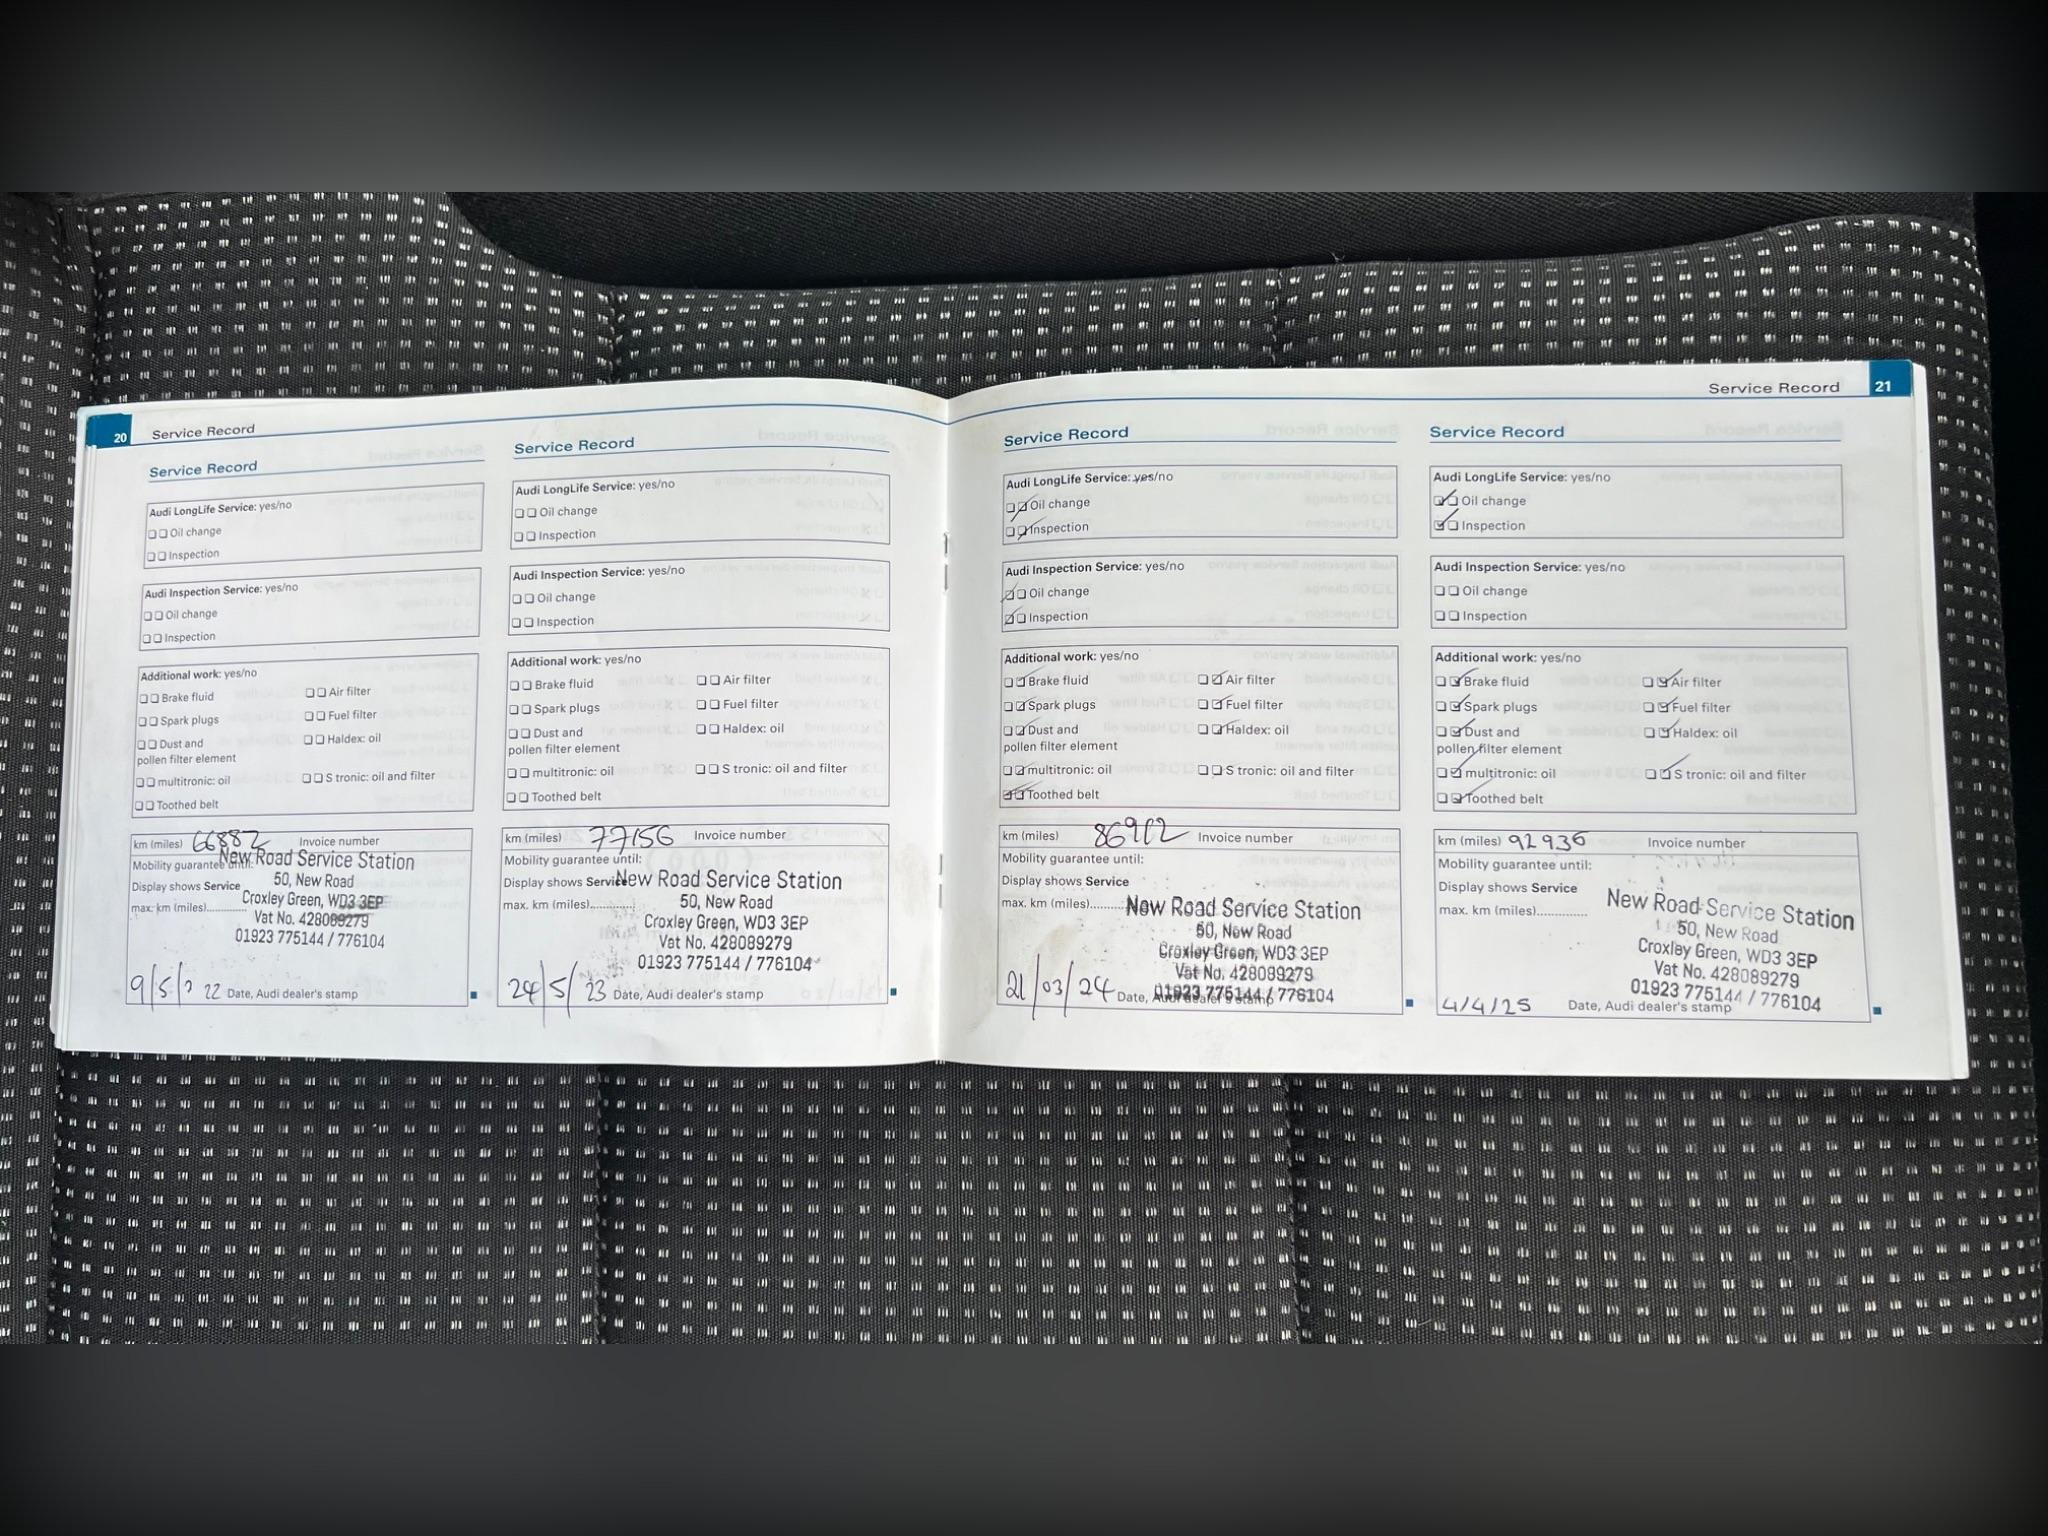 20
Service Record
Service Record
Audi LongLife Service: yes/no
Oil change
Inspection
Audi Inspection Service: yes/no
Oil change
Inspection
Additional work: yes/no
Brake fluid
Air filter
Spark plugs
Fuel filter
Dust and
pollen filter element
Haldex: oil
multitronic: oil
S tronic: oil and filter
Toothed belt
km (miles) 66882 Invoice number
Mobility guarantee until:
New Road Service Station
Display shows Service
50, New Road
max. km (miles)............
Croxley Green, WD3 3EP
Vat No. 428089279
01923 775144 / 776104
9/5/ 22 Date, Audi dealer's stamp
Service Record
Audi LongLife Service: yes/no
Oil change
Inspection
Audi Inspection Service: yes/no
Oil change
Inspection
Additional work: yes/no
Brake fluid
Air filter
Spark plugs
Fuel filter
Dust and
pollen filter element
Haldex: oil
multitronic: oil
S tronic: oil and filter
Toothed belt
km (miles) 77156 Invoice number
Mobility guarantee until:
Display shows Service
New Road Service Station
max. km (miles)............
50, New Road
Croxley Green, WD3 3EP
Vat No. 428089279
01923 775144 / 776104
24/5/23 Date, Audi dealer's stamp
Service Record
21
Service Record
Audi LongLife Service: yes/no
Oil change
Inspection
Audi Inspection Service: yes/no
Oil change
Inspection
Additional work: yes/no
Brake fluid
Air filter
Spark plugs
Fuel filter
Dust and
pollen filter element
Haldex: oil
multitronic: oil
S tronic: oil and filter
Toothed belt
km (miles) Invoice number
Mobility guarantee until:
Display shows Service
max. km (miles)............
New Road Service Station
50, New Road
Croxley Green, WD3 3EP
Vat No. 428089279
01923 775144 / 776104
21/03/24 Date, Audi dealer's stamp
Service Record
Audi LongLife Service: yes/no
Oil change
Inspection
Audi Inspection Service: yes/no
Oil change
Inspection
Additional work: yes/no
Brake fluid
Air filter
Spark plugs
Fuel filter
Dust and
pollen filter element
Haldex: oil
multitronic: oil
S tronic: oil and filter
Toothed belt
km (miles) 92936 Invoice number
Mobility guarantee until:
Display shows Service
max. km (miles)..............
New Road Service Station
50, New Road
Croxley Green, WD3 3EP
Vat No. 428089279
01923 775144 / 776104
4/4/25 Date, Audi dealer's stamp